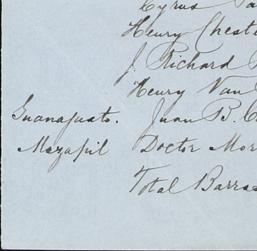 Cyrus
Henry Chest
J. Richard
Henry Van
Guanajuato. Juan B. C
Mazapil Doctor Mor
Total Barras